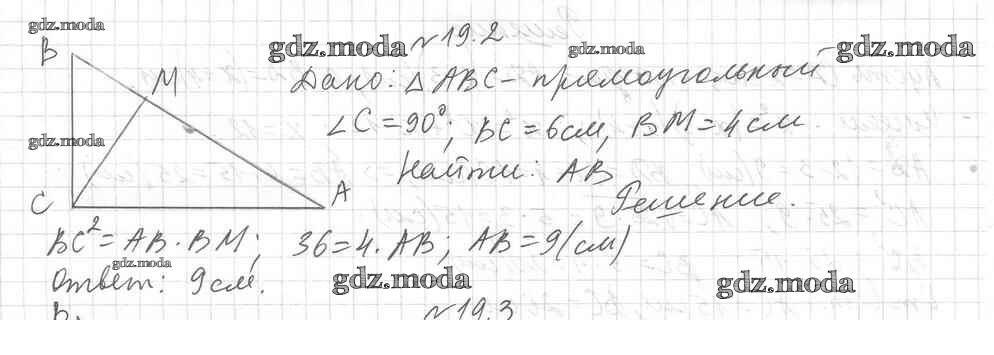 gdz.moda
gdz.moda №19.2 gdz.moda gdz.moda
B
M
Дано: △ABC - прямоугольный
gdz.moda
∠C = 90°; BC = 6см, BM = 4см.
Найти: AB
C A
Решение.
BC² = AB · BM; 36 = 4 · AB; AB = 9(см)
gdz.moda
Ответ: 9см.
gdz.moda gdz.moda
№19.3